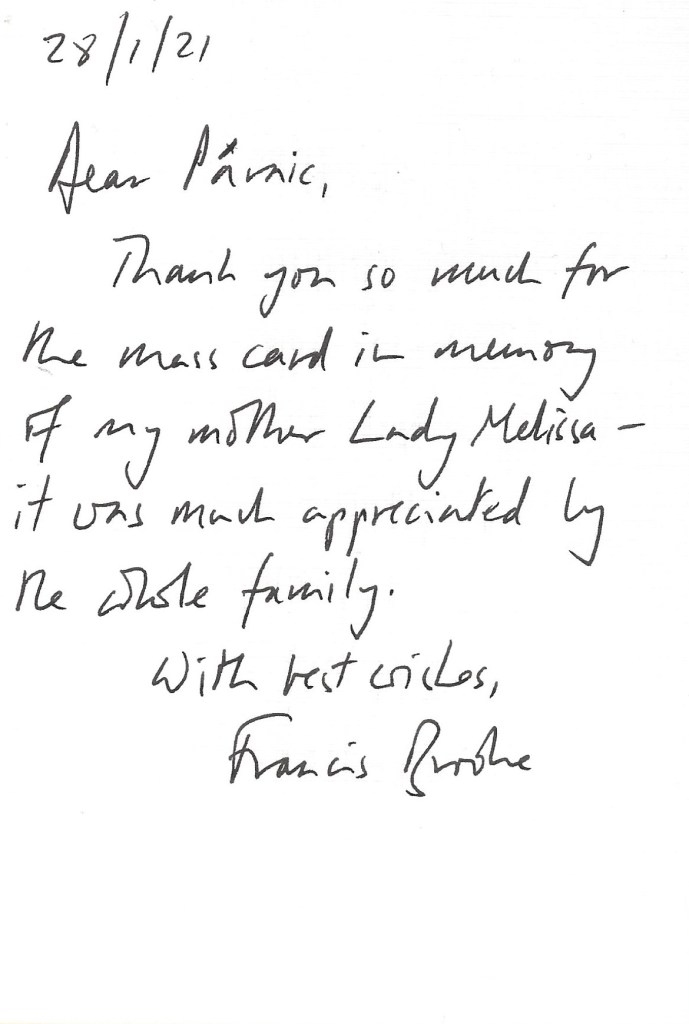 28/1/21
Dear Párnic,
Thank you so much for
the mass card in memory
of my mother Lady Melissa –
it was much appreciated by
the whole family.
With best wishes,
Francis Brooke